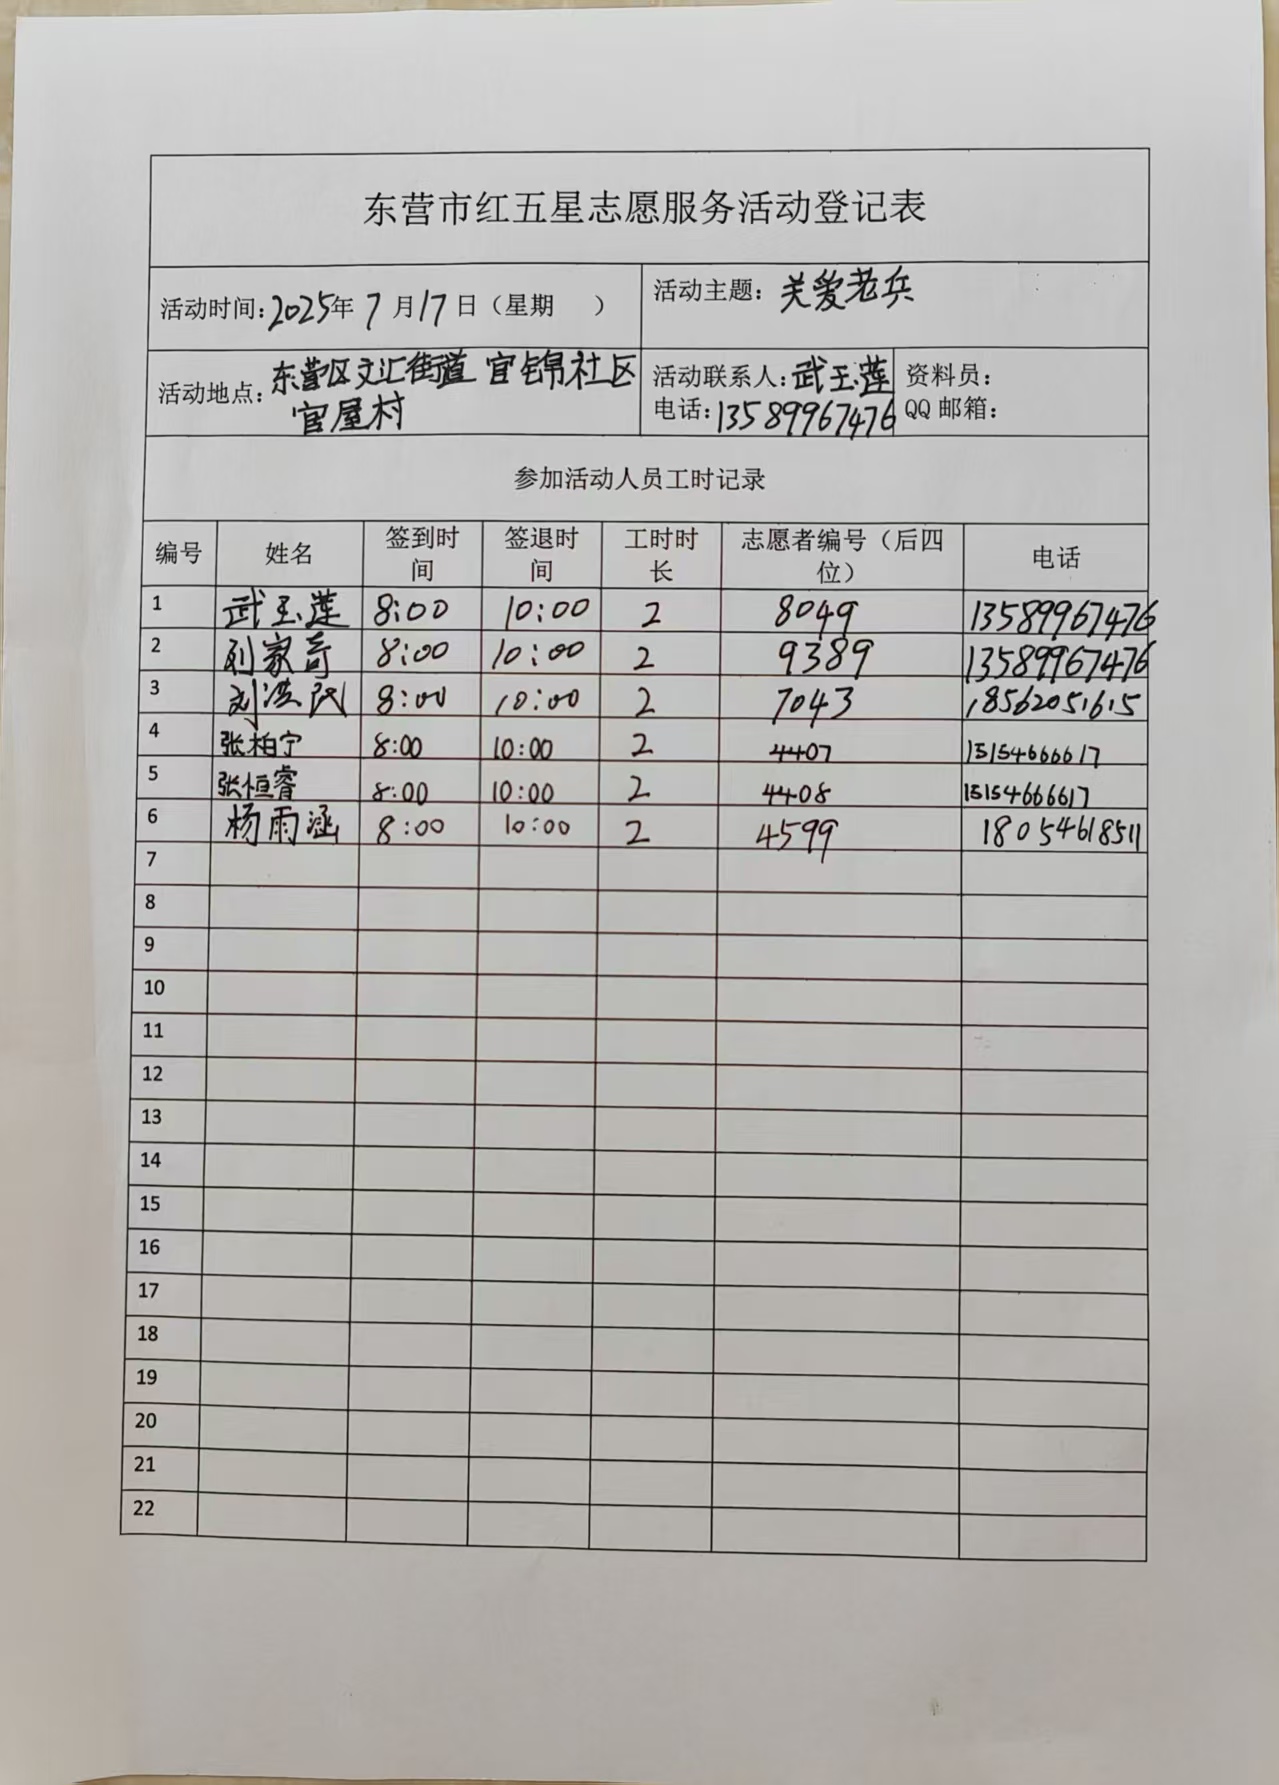 东营市红五星志愿服务活动登记表
活动时间:2025年7月17日（星期 ）
活动主题:关爱老兵
活动地点:东营区文汇街道 官锦社区
官屋村
活动联系人:武玉莲
电话:13589967476
资料员:
QQ邮箱:
参加活动人员工时记录
编号 姓名 签到时间 签退时间 工时时长 志愿者编号（后四位） 电话
1 武玉莲 8:00 10:00 2 8049 13589967476
2 刘家奇 8:00 10:00 2 9389 13589967476
3 刘洪民 8:00 10:00 2 7043 18562051615
4 张柏宁 8:00 10:00 2 4407 15154666617
5 张恒睿 8:00 10:00 2 4408 15154666617
6 杨雨涵 8:00 10:00 2 4599 18054618511
7
8
9
10
11
12
13
14
15
16
17
18
19
20
21
22